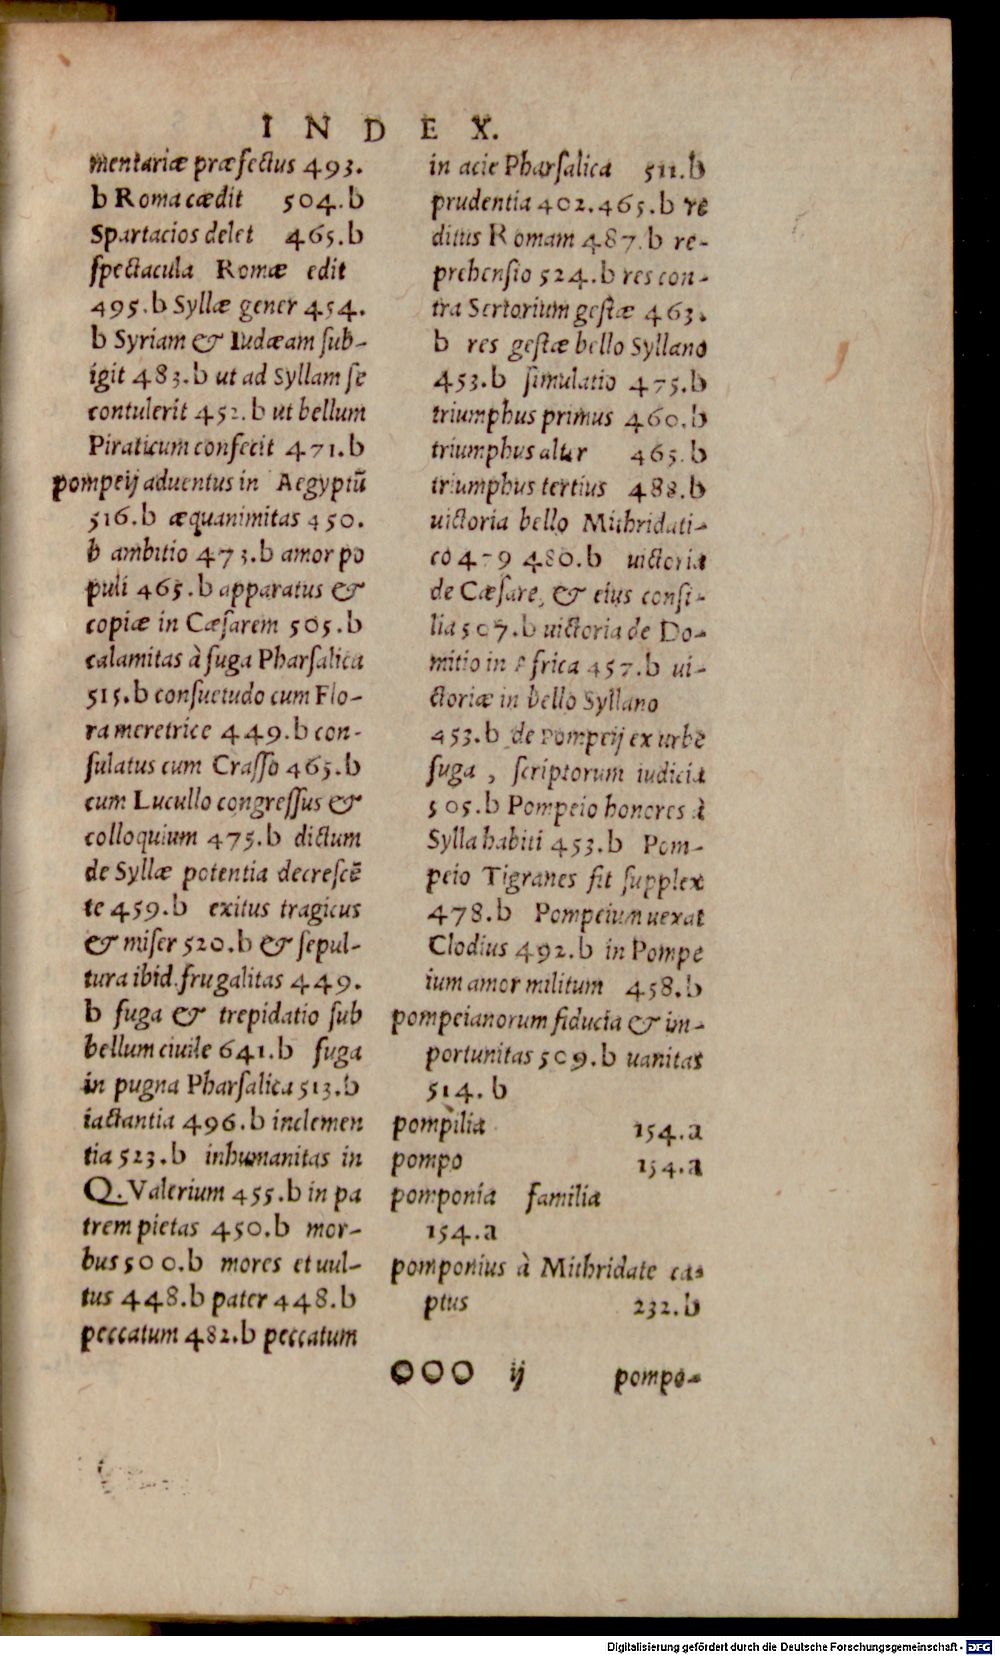 INDEX.
mentariæ præfectus 493.
b Roma cædit 504.b
Spartacios delet 465.b
spectacula Romæ edit
495.b Syllæ gener 454.
b Syriam & Iudæam sub-
igit 483.b ut ad Syllam se
contulerit 452.b ut bellum
Piraticum confecit 471.b
pompeij aduentus in Aegyptū
516.b æquanimitas 450.
b ambitio 473.b amor po
puli 465.b apparatus &
copiæ in Cæsarem 505.b
calamitas à fuga Pharsalica
515.b consuetudo cum Flo-
ra meretrice 449.b con-
sulatus cum Crasso 465.b
cum Lucullo congressus &
colloquium 475.b dictum
de Syllæ potentia decrescē
te 459.b exitus tragicus
& miser 520.b & sepul-
tura ibid. frugalitas 449.
b fuga & trepidatio sub
bellum ciuile 641.b fuga
in pugna Pharsalica 513.b
iactantia 496.b inclemen
tia 523.b inhumanitas in
Q. Valerium 455.b in pa
trem pietas 450.b mor-
bus 500.b mores et uul-
tus 448.b pater 448.b
peccatum 482.b peccatum
in acie Pharsalica 511.b
prudentia 402.465.b re
ditus Romam 487.b re-
prehensio 524.b res con-
tra Sertorium gestæ 463.
b res gestæ bello Syllano
453.b simulatio 475.b
triumphus primus 460.b
triumphus alter 465.b
triumphus tertius 488.b
uictoria bello Mithridati-
co 479 480.b uictoria
de Cæsare, & eius consi-
lia 507.b uictoria de Do-
mitio in Africa 457.b ui-
ctoriæ in bello Syllano
453.b de Pompeij ex urbe
fuga, scriptorum iudicia
505.b Pompeio honores à
Sylla habiti 453.b Pom-
peio Tigranes fit supplex
478.b Pompeium uexat
Clodius 492.b in Pompe
ium amor militum 458.b
pompeianorum fiducia & im-
portunitas 509.b uanitas
514.b
pompilia 154.a
pompo 154.a
pomponia familia
154.a
pomponius à Mithridate ca-
ptus 232.b
OOO ij pompo-
Digitalisierung gefördert durch die Deutsche Forschungsgemeinschaft - DFG